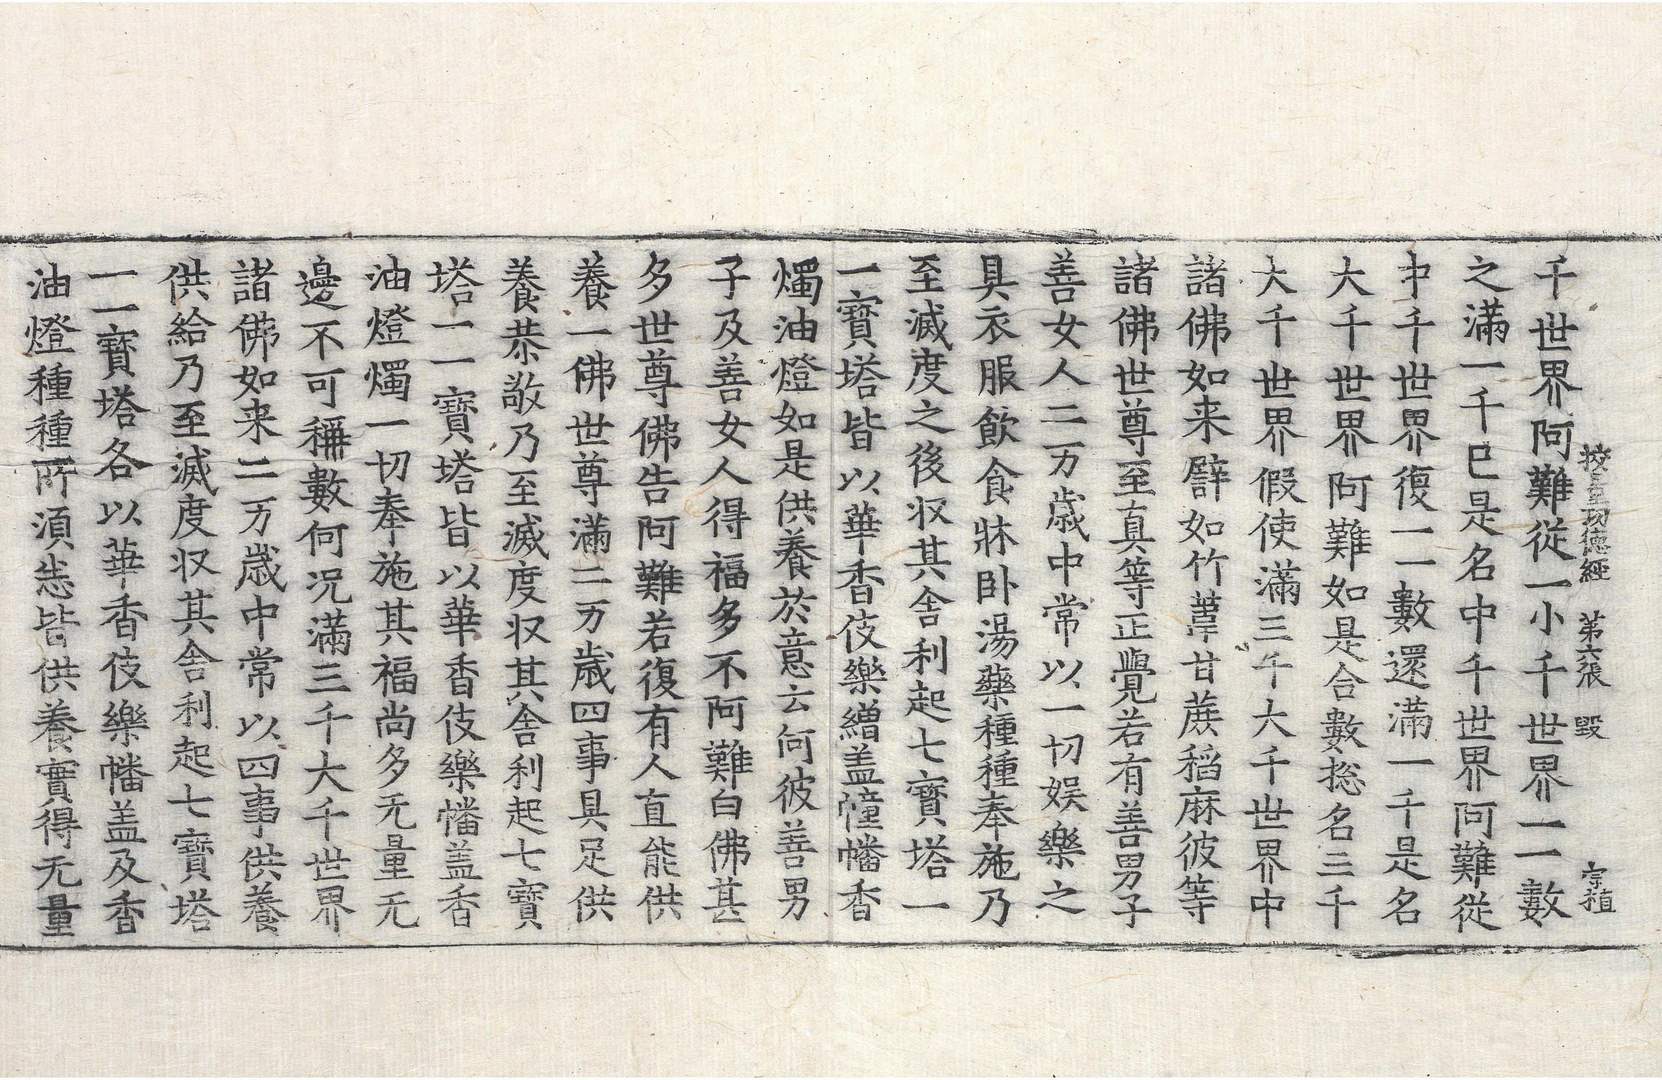 挍量功德經 第六張 毀 宗植
千世界阿難從一小千世界一一數
之滿一千已是名中千世界阿難從
中千世界復一一數還滿一千是名
大千世界阿難如是合數捴名三千
大千世界假使滿三千大千世界中
諸佛如来譬如竹葦甘蔗稻麻彼等
諸佛世尊至真等正覺若有善男子
善女人二万歲中常以一切娯樂之
具衣服飲食牀卧湯藥種種奉施乃
至滅度之後收其舍利起七寶塔一
一寶塔皆以華香伎樂繒盖幢幡香
燭油燈如是供養於意云何彼善男
子及善女人得福多不阿難白佛甚
多世尊佛告阿難若復有人直能供
養一佛世尊滿二万歲四事具足供
養恭敬乃至滅度收其舍利起七寶
塔一一寶塔皆以華香伎樂幡盖香
油燈燭一切奉施其福尚多无量无
邊不可稱數何况滿三千大千世界
諸佛如来二万歲中常以四事供養
供給乃至滅度收其舍利起七寶塔
一一寶塔各以華香伎樂幡盖及香
油燈種種所須悉皆供養實得无量